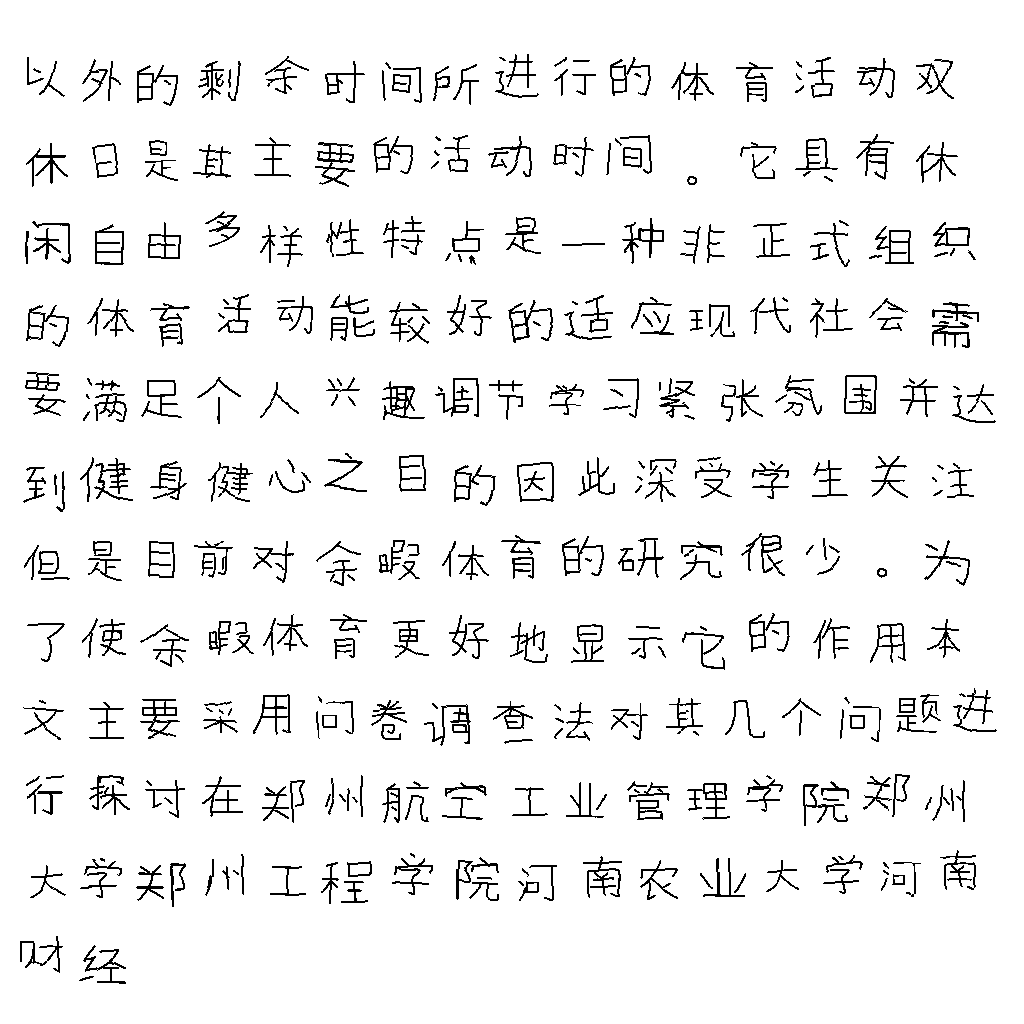 以外的剩余时间所进行的体育活动双
休日是其主要的活动时间。它具有休
闲自由多样性特点是一种非正式组织
的体育活动能较好的适应现代社会需
要满足个人兴趣调节学习紧张氛围并达
到健身健心之目的因此深受学生关注
但是目前对余暇体育的研究很少。为
了使余暇体育更好地显示它的作用本
文主要采用问卷调查法对其几个问题进
行探讨在郑州航空工业管理学院郑州
大学郑州工程学院河南农业大学河南
财经